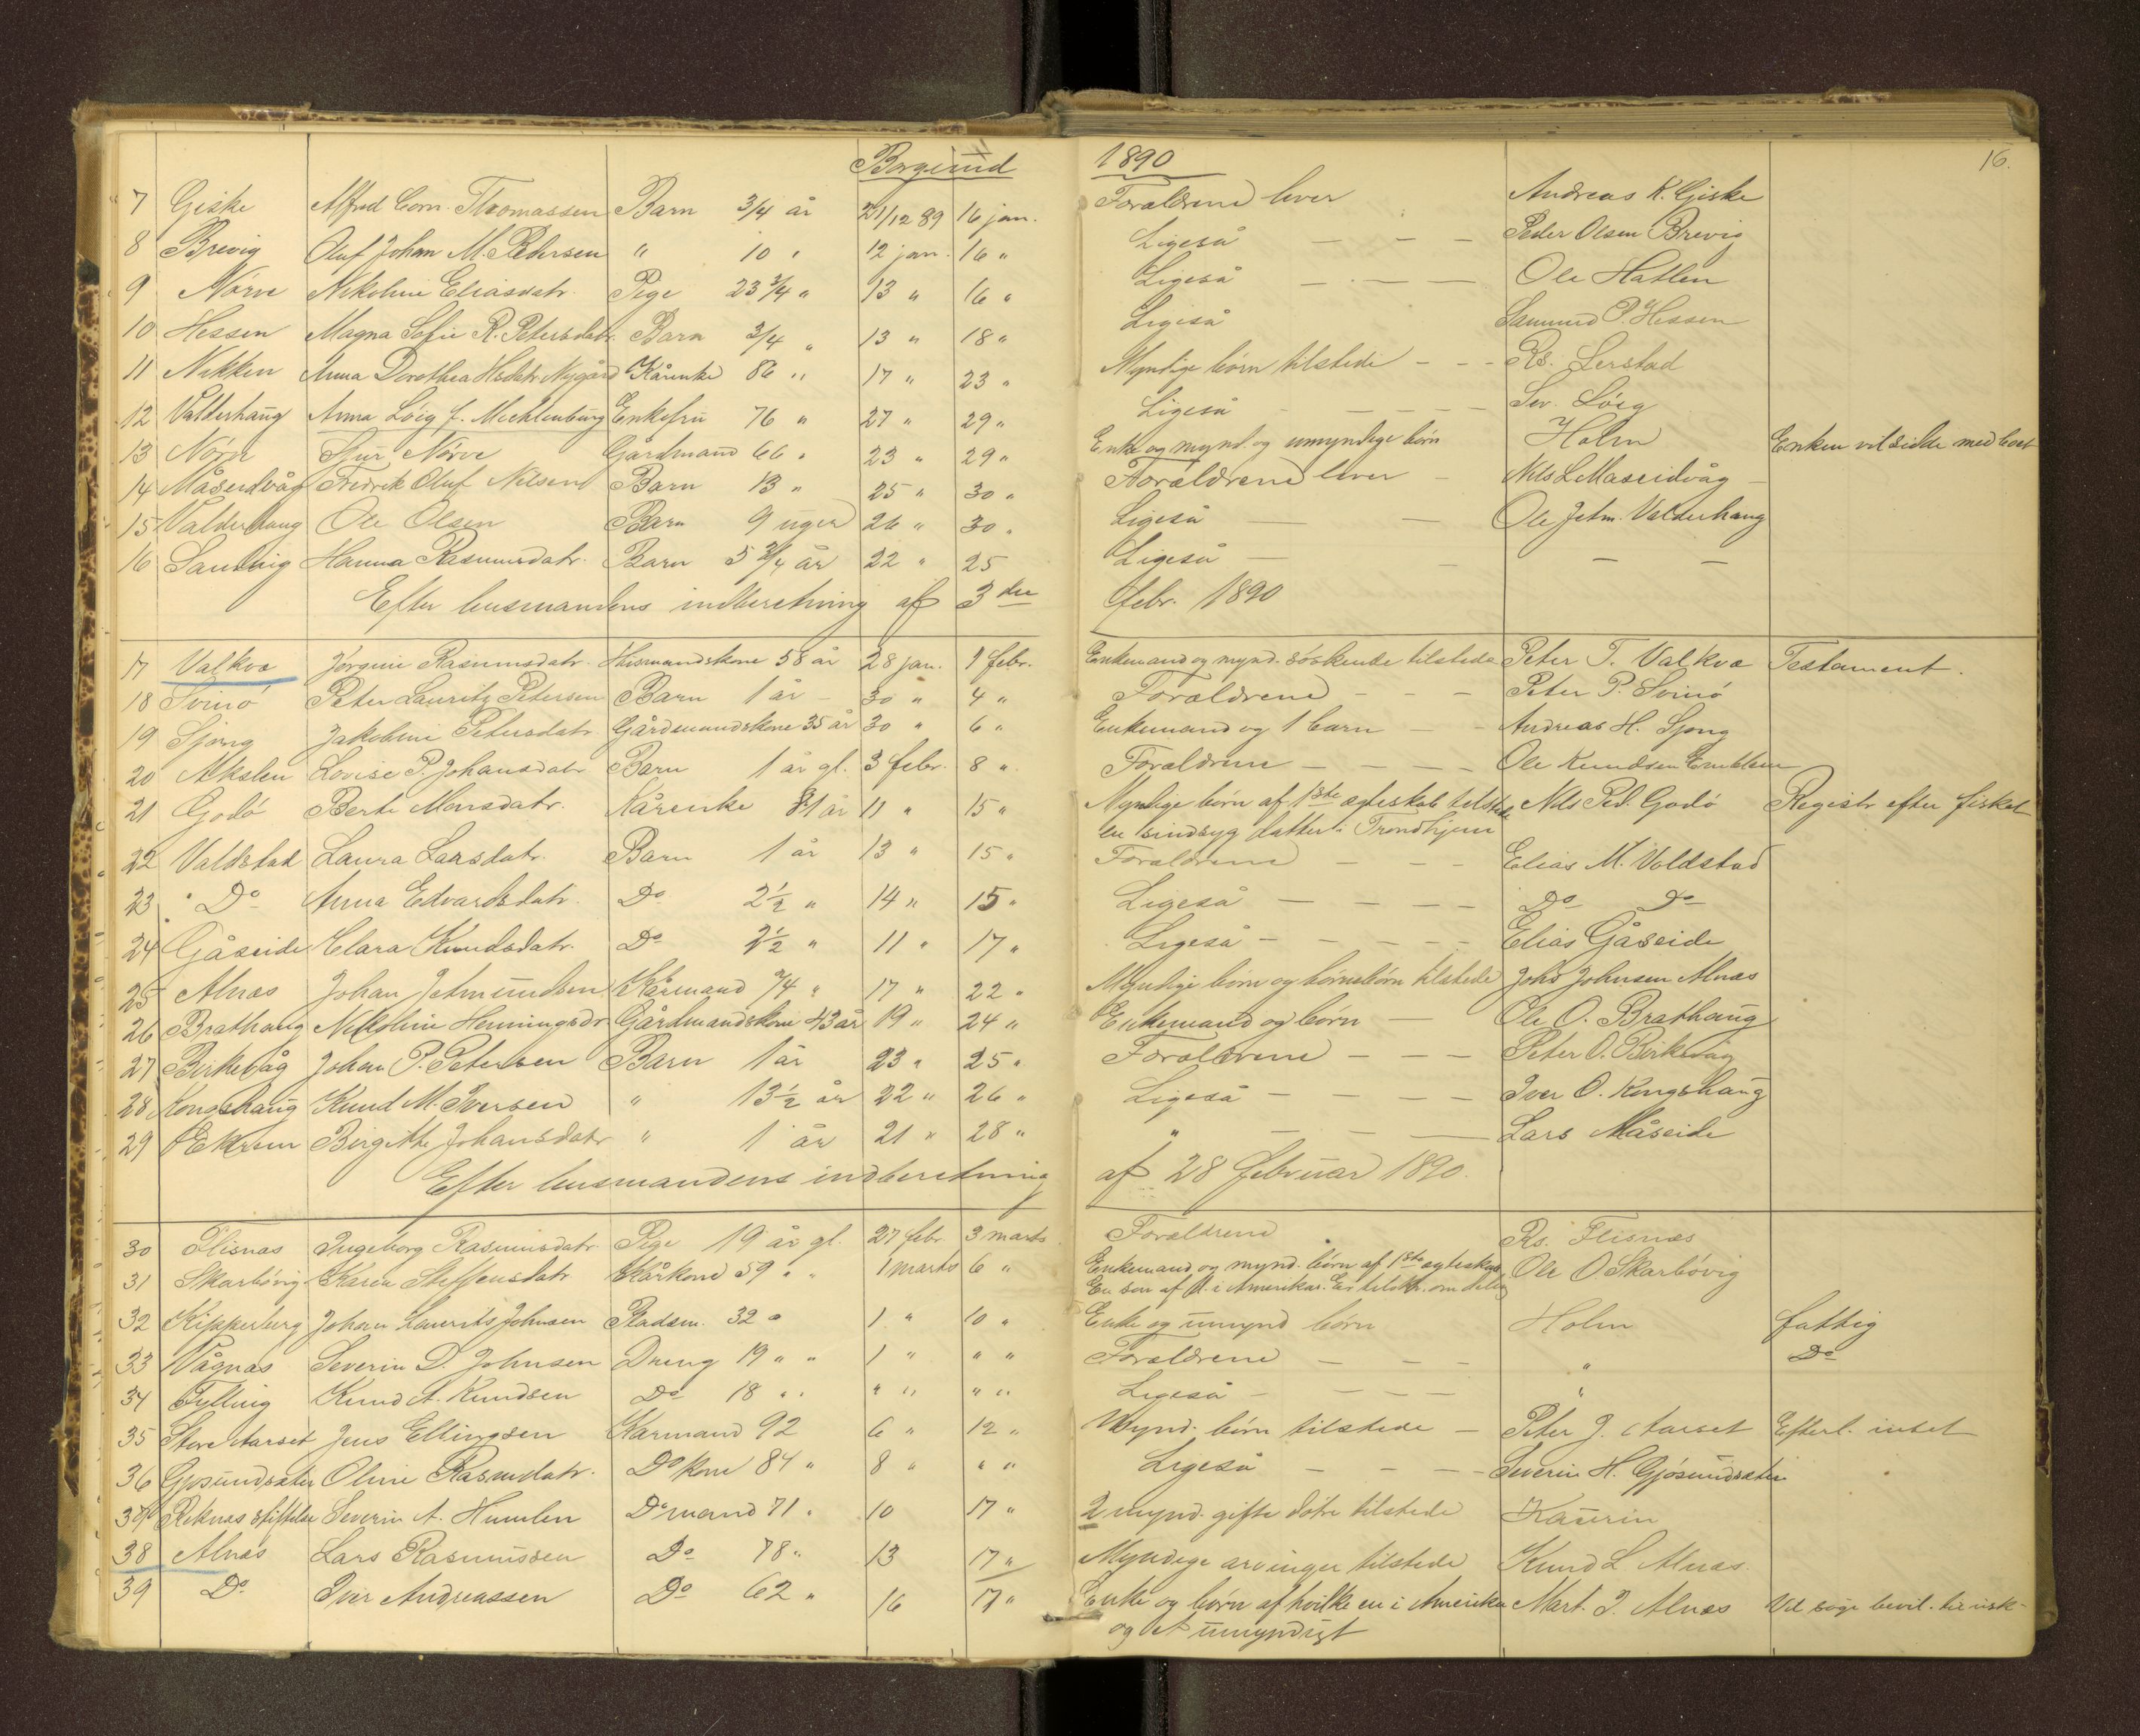 Borgund 1890 16.
7 Giske Alfred Corn. Thomassen Barn 3/4 år 21/12 89 16 jan. Forældrene lever Andreas K. Giske
8 Brevig Oluf Johan M. Pedersen " 10 " 12 jan. 16 " Ligeså — — — Peder Olsen Brevig
9 Nörve Nikoline Eliasdatr. Pige 23 3/4 " 13 " 16 " Ligeså — — — Ole Hatlen
10 Hessen Magna Sofie R. Petersdatr. Barn 3/4 " 13 " 18 " Ligeså P. Hessen
11 Nekken Anna Dorothea Nygård Kårenke 86 " 17 " 23 " Myndige börn tilstede — — Rs. Lerstad
12 Valderhaug Anna Löig f. Mechlenburg Enkefru 76 " 27 " 29 " Ligeså — — — Sev. Löig
13 Nörve Sjur Nörve Gårdmand 66 " 23 " 29 " Enke og mynd. og umyndige börn Holm Enken vil sidde med boet
14 Måseidvåg Fredrik Oluf Nilsen Barn 13 " 25 " 30 " Forældrene lever — Nils L Maseidvåg —
15 Valderhaug Ole Olsen Barn 9 uger 26 " 30 " Ligeså — — Ole Jetm. Valderhaug
16 Sandvig Hanna Rasmusdatr. Barn 5 3/4 år 22 " 25 Ligeså — — — —
Efter lensmandens indberetning af 3die febr. 1890
17 Valkvæ Jörgine Rasmusdatr. Husmandskone 58 år 28 jan. 1 febr. Enkemand og mynd. söskende tilstede Peter T. Valkvæ Testament.
18 Svinö Peter Lauritz Petersen Barn 1 år — 30 " 4 " Forældrene — — — Peter P. Svinö
19 Sjong Jakobine Petersdatr. Gårdmandskone 35 år 30 " 6 " Enkemand og 1 barn — — Andreas H. Sjong
20 Akslen Lovise P. Johansdatr. Barn 1 år gl. 3 febr. 8 " Forældrene — — — Ole Knudsen Emblem
21 Godö Berte Monsdatr. Kårenke 81 år 11 " 15 " Myndige börn af 1ste ægteskab tilstede Nils Ped. Godö Registr. efter fisket
en sindsyg datter i Trondhjem
22 Valdstad Laura Larsdatr. Barn 1 år 13 " 15 " Forældrene — — — Elias M. Voldstad
23 Do Anna Edvardsdatr. Do 2½ " 14 " 15 " Ligeså — — — — Do Do
24 Gåseide Clara Knudsdatr. Do 2½ " 11 " 17 " Ligeså — — — — Elias Gåseide
25 Alnæs Johan Jetmundsen Kårmand 74 " 17 " 22 " Myndige börn og börnebörn tilstede Johs Johnsen Alnæs
26 Brathaug Nikoline Henningsdr Gårdmandskone 43 år 19 " 24 " Enkemand og börn — Ole O. Brathaug
27 Birkevåg Johan P. Petersen Barn 1 år 23 " 25 " Forældrene — — — Peter O. Birkevåg
28 Kongshaug Knud M. Iversen " 13½ år 22 " 26 " Ligeså — — — — Iver O. Kongshaug
29 Ekrem Birgitte Johansdatr " 1 år 21 " 28 " " — — — Lars Måseide
Efter lensmandens indberetning af 28 februar 1890.
30 Flisnæs Ingeborg Rasmusdatr Pige 19 år gl. 27 febr. 3 marts Forældrene Rs. Flisnæs
31 Skarbövig Karen Steffensdatr. Kårkone 59 " " 1 marts 6 " Enkemand og mynd. börn af 1ste ægteskab Ole O Skarbövig
En sön af A. i Amerika.
32 Kipperberg Johan Laurits Johnsen Pladsm. 32 " 1 " 10 " Enke og umynd börn Holm fattig
33 Vågnæs Severin D. Johnsen Dreng 19 " " 1 " " " Forældrene — — — " Do
34 Fylling Knud A. Knudsen Do 18 " " " " " " Ligeså — — — — "
35 Store Aarset Jens Ellingsen Kårmand 92 6 " 12 " Mynd. börn tilstede — Peter J. Aarset Efterl. intet
36 Gjösundsæter Oline Rasmdatr. Do kone 84 " 8 " " " Ligeså — — — Severin H. Gjösundsæter
37 Reknæs stiftelse Severin A. Humlen Do mand 71 " 10 17 " 2 mynd. gifte dötre tilstede Kaurin
38 Alnæs Lars Rasmussen Do 78 " 13 17 " Myndige arvinger tilstede Knud L. Alnæs.
39 Do. Iver Andreassen Do 62 " 16 17 " Enke og börn af hvilke en i Amerika Mart. I. Alnæs Vil söge bevil. til usk-
og et umyndigt